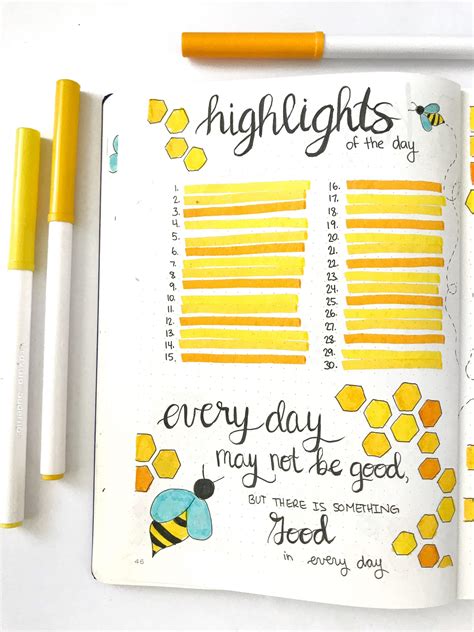 highlights
of the day
1.
2.
3.
4.
5.
6.
7.
8.
9.
10.
11.
12.
13.
14.
15.
16.
17.
18.
19.
20.
21.
22.
23.
24.
25.
26.
27.
28.
29.
30.
every day
may not be good,
BUT THERE IS SOMETHING
Good
in every day
46